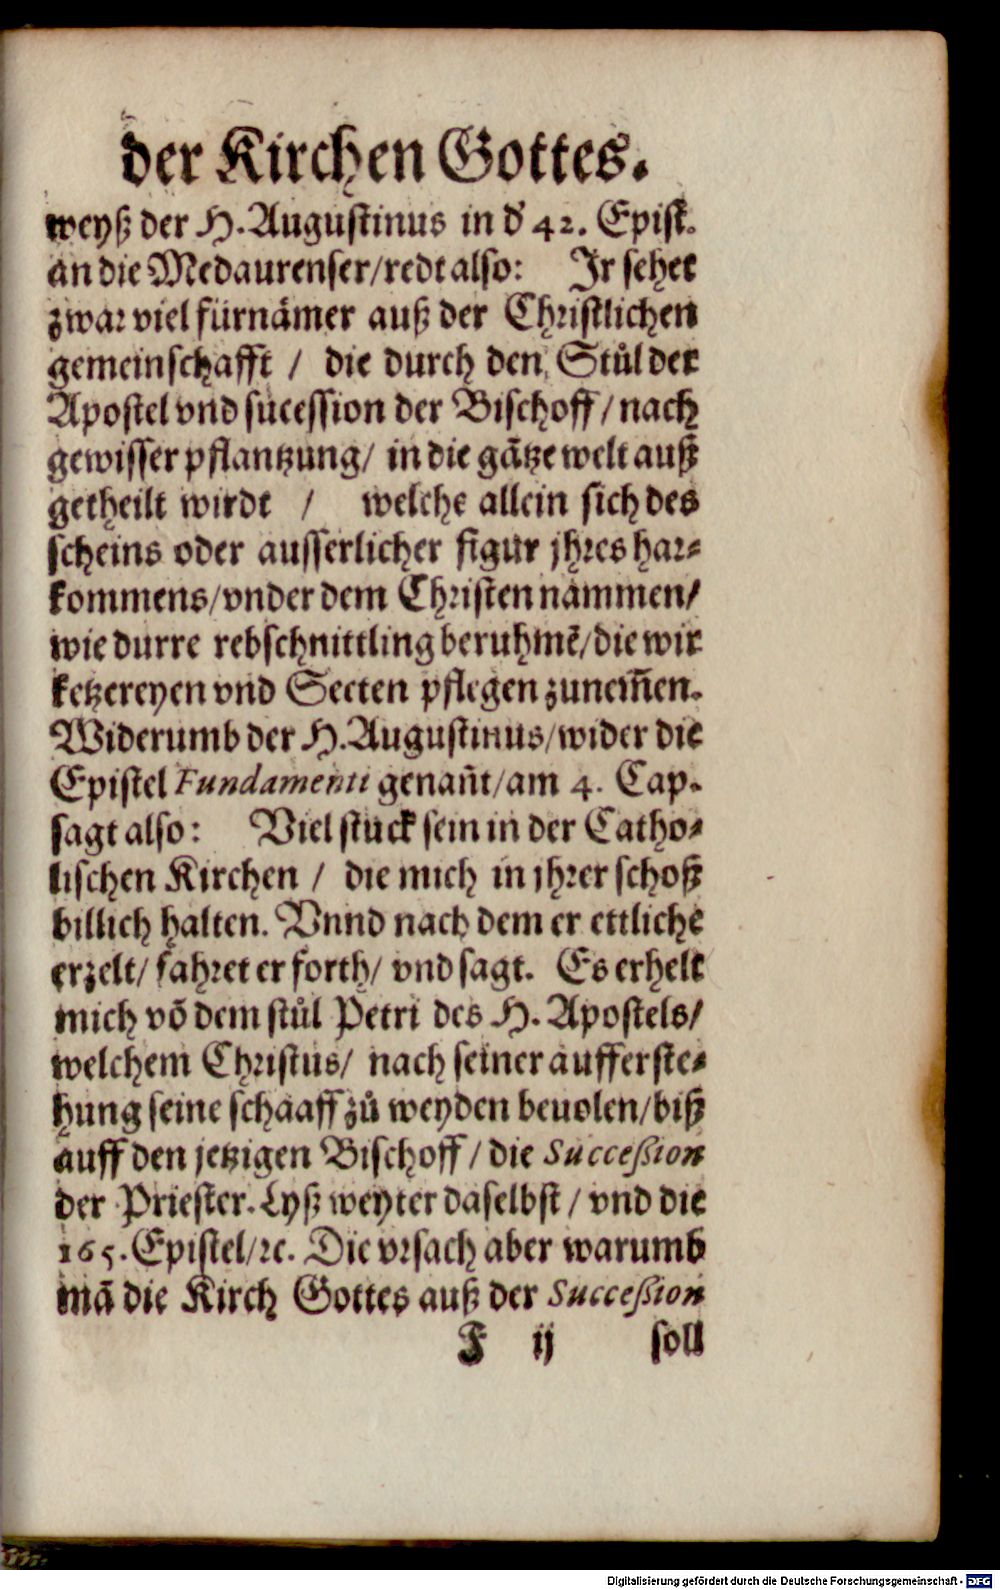 der Kirchen Gottes.
weyß der H. Augustinus in d' 42. Epist.
an die Medaurenser/redt also: Ir sehet
zwar viel fürnämer auß der Christlichen
gemeinschafft / die durch den Stůl der
Apostel vnd sucession der Bischoff / nach
gewisser pflantzung/ in die gätze welt auß
getheilt wirdt / welche allein sich des
scheins oder ausserlicher figur jhres har⸗
kommens/vnder dem Christen nammen/
wie durre rebschnittling beruhmē/die wir
ketzereyen vnd Secten pflegen zunem̄en.
Widerumb der H. Augustinus/wider die
Epistel Fundamenti genan̄t/am 4. Cap.
sagt also: Viel stuck sein in der Catho⸗
lischen Kirchen / die mich in jhrer schoß
billich halten. Vnnd nach dem er ettliche
erzelt/ fahret er forth/ vnd sagt. Es erhelt
mich võ dem stůl Petri des H. Apostels/
welchem Christus/ nach seiner aufferste⸗
hung seine schaaff zů weyden beuolen/biß
auff den jetzigen Bischoff / die Succeßion
der Priester. Lyß weyter daselbst / vnd die
165. Epistel/ꝛc. Die vrsach aber warumb
mã die Kirch Gottes auß der Succeßion
F ij soll
Digitalisierung gefördert durch die Deutsche Forschungsgemeinschaft - DFG